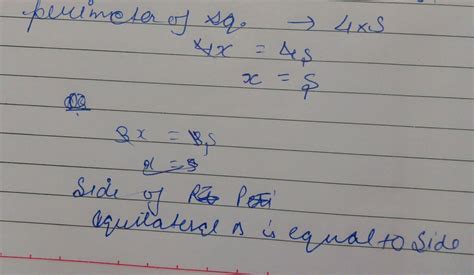 perimeter of sq. → 4×S
4x = 4S
x = S
3x = 3S
x = S
Side of
equilateral Δ is equal to side